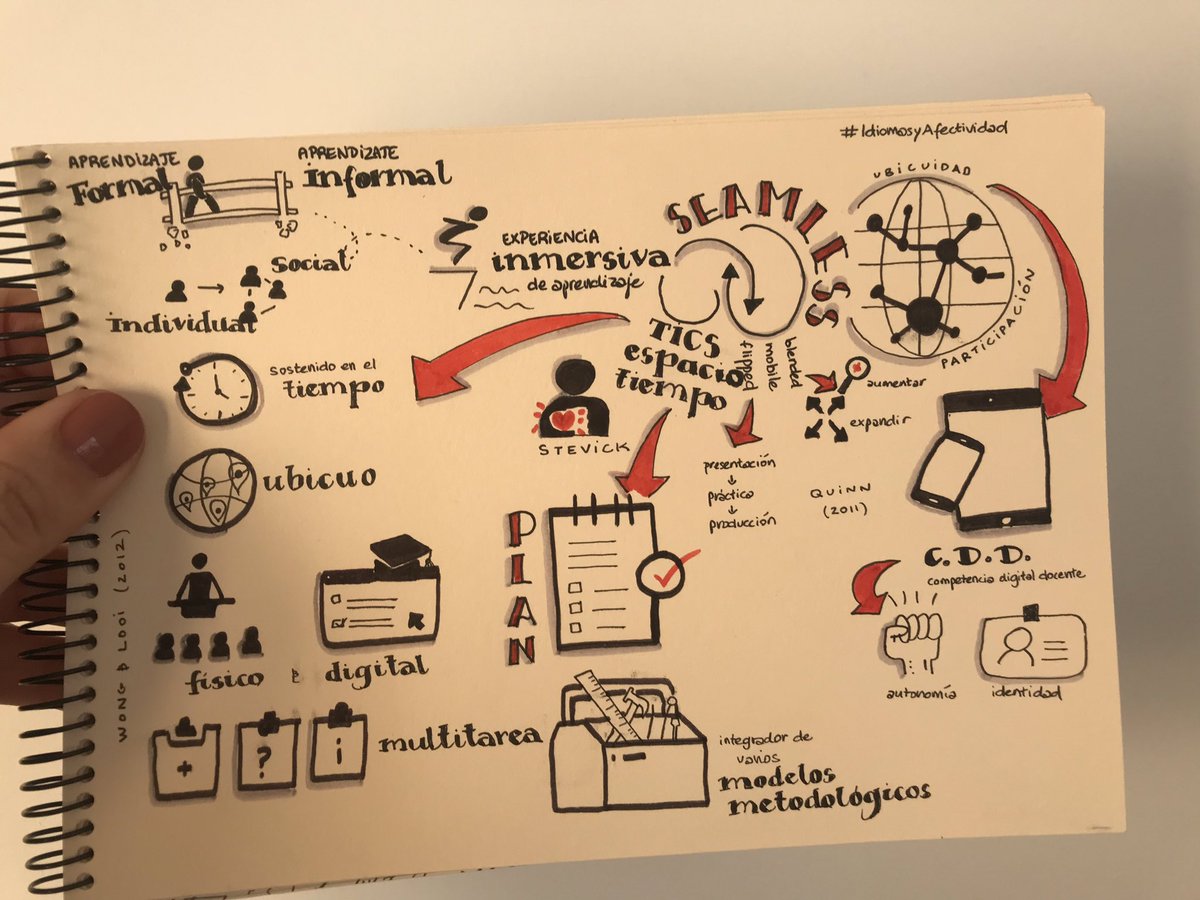 #IdiomasyAfectividad
APRENDIZATE
Formal
APRENDIZATE
informal
Social
individual
EXPERIENCIA
inmersiva
de aprendizaje
SEAMLESS
TICS
espacio
tiempo
flipped
mobile
blended
UBICUIDAD
PARTICIPACIÓN
aumentar
expandir
QUINN
(2011)
sostenido en el
tiempo
ubicuo
WONG & LOOI (2012)
físico & digital
+
?
i
multitarea
STEVICK
presentación
práctica
producción
PLAN
integrador de
varios
modelos
metodológicos
C.D.D.
competencia digital docente
autonomía
identidad